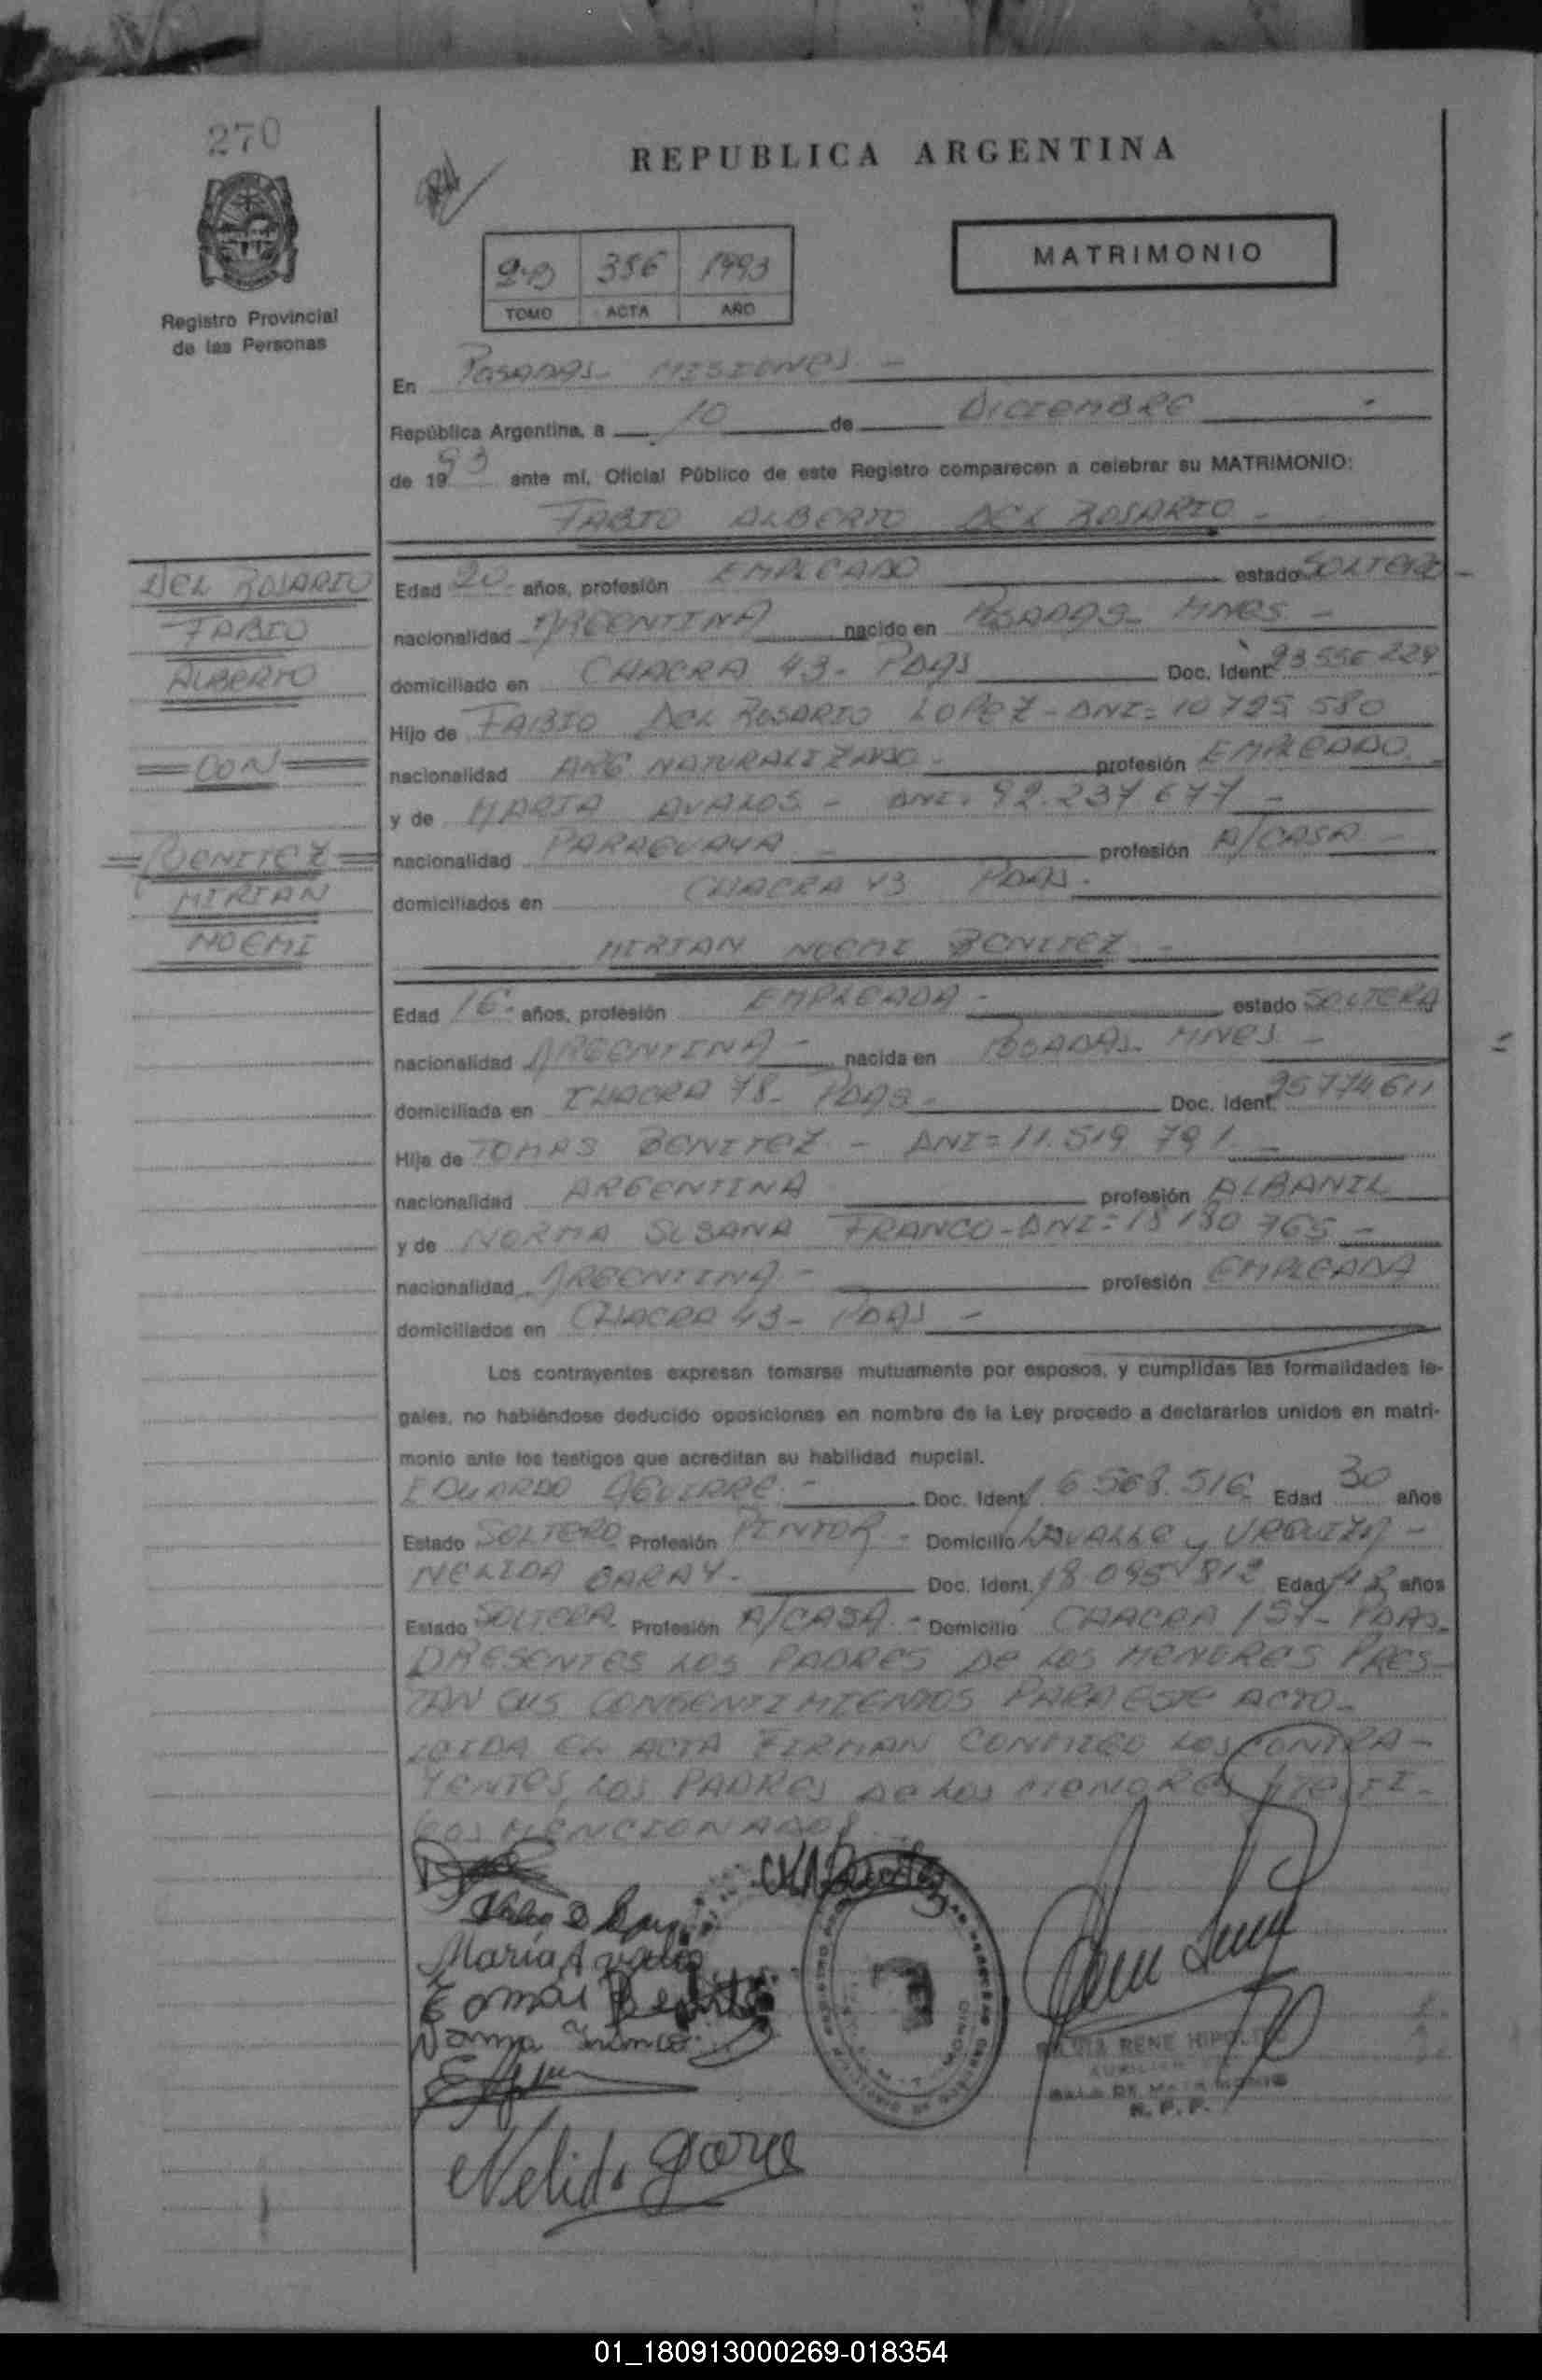 270
REPUBLICA ARGENTINA
MATRIMONIO
386 1993
TOMO ACTA AÑO
Registro Provincial
de las Personas
En POSADAS- MISIONES -
República Argentina, a 10 de DICIEMBRE
de 1993 ante mí, Oficial Público de este Registro comparecen a celebrar su MATRIMONIO:
FABIO ALBERTO DEL ROSARIO -
DEL ROSARIO
FABIO
ALBERTO
CON
BENITEZ
MIRIAN
NOEMI
Edad 20 años, profesión EMPLEADO estado SOLTERO -
nacionalidad ARGENTINA nacido en POSADAS- MNES -
domiciliado en CHACRA 43- PDAS Doc. Ident. 23556229
Hijo de FABIO DEL ROSARIO LOPEZ - DNI= 10725580
nacionalidad ARG NATURALIZADO - profesión EMPLEADO -
y de MARIA AVALOS - DNI. 92.237677 -
nacionalidad PARAGUAYA - profesión A/CASA -
domiciliados en CHACRA 43 PDAS.
MIRIAN NOEMI BENITEZ -
Edad 16- años, profesión EMPLEADA - estado SOLTERA
nacionalidad ARGENTINA - nacida en POSADAS- MNES -
domiciliada en CHACRA 78- PDAS- Doc. Ident. 25774611
Hija de TOMAS BENITEZ - DNI= 11.519 791 -
nacionalidad ARGENTINA profesión ALBANIL
y de NORMA SUSANA FRANCO - DNI= 13180765 -
nacionalidad ARGENTINA - profesión EMPLEADA
domiciliados en CHACRA 43- PDAS -
Los contrayentes expresan tomarse mutuamente por esposos, y cumplidas las formalidades le-
gales, no habiéndose deducido oposiciones en nombre de la Ley procedo a declararlos unidos en matri-
monio ante los testigos que acreditan su habilidad nupcial.
EDUARDO AGUIRRE. - Doc. Ident. 16568.516 Edad 30 años
Estado SOLTERO Profesión PINTOR - Domicilio LAVALLE y URQUIZA -
NELIDA GARAY. Doc. Ident. 18095812 Edad años
Estado SOLTERA Profesión A/CASA - Domicilio CHACRA 157- PDAS-
PRESENTES LOS PADRES DE LOS MENORES PRES-
TAN SUS CONSENTIMIENTOS PARA ESTE ACTO-
LEIDA EL ACTA FIRMAN CONMIGO LOS CONTRA-
YENTES, LOS PADRES DE LOS MENORES y TESTI-
GOS MENCIONADOS
María Avalos
Tomás Benitez
Norma Franco
Nelida Garay
RENE HIPOLITO
SALA DE MATRIMONIO
R. P. P.
01_180913000269-018354